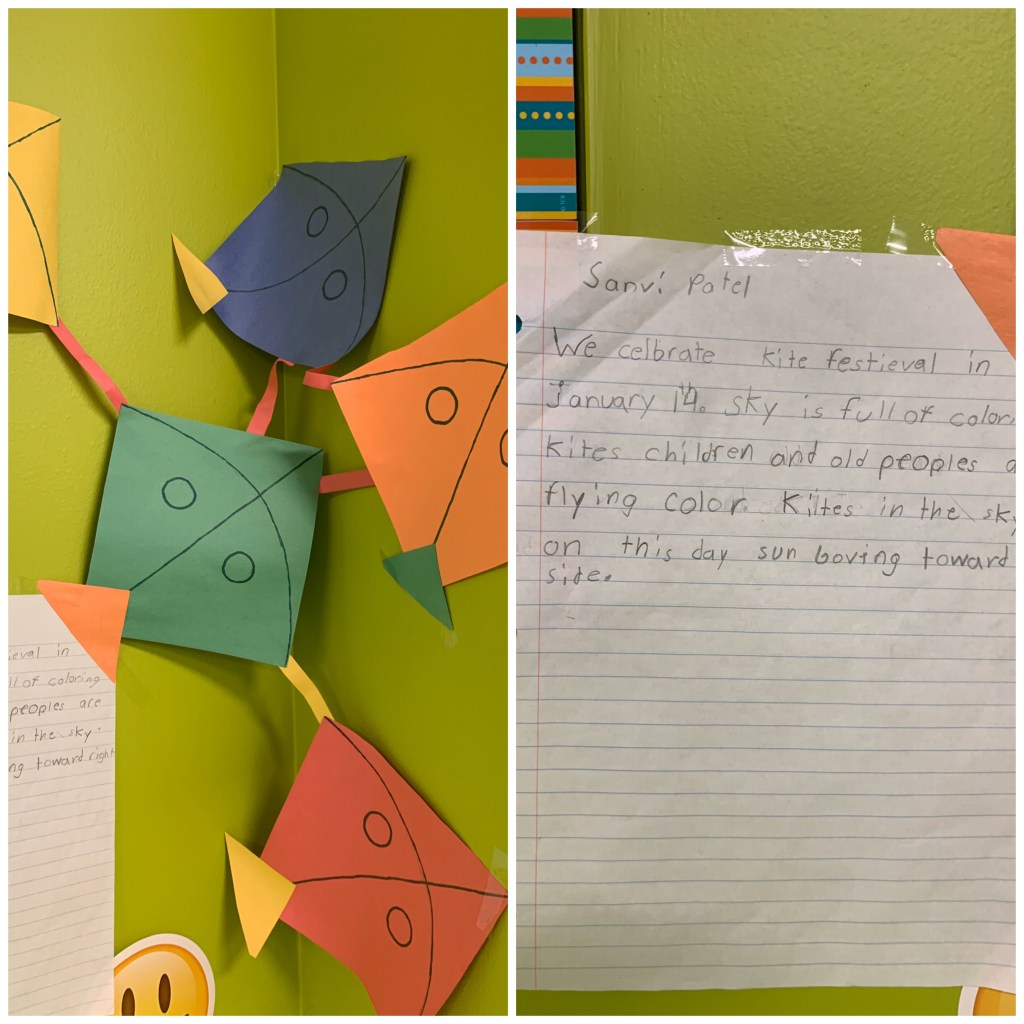 ieval in
ll of coloring
peoples are
in the sky.
ng toward right
Sanvi Patel
We celbrate kite festieval in
January 14. sky is full of color
kites children and old peoples a
flying color kiltes in the sky
on this day sun boving toward
site.